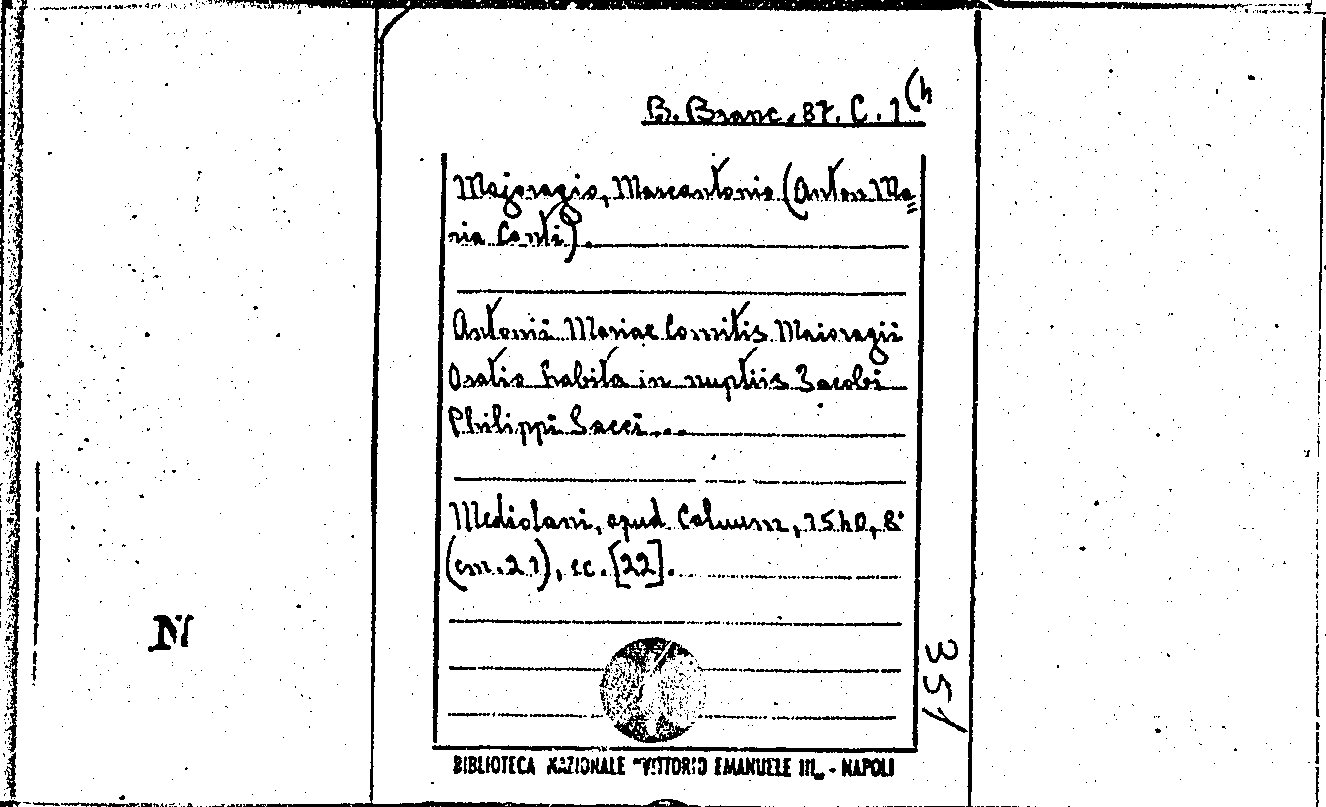 B. Branc. 87. C. 1 (4
Majoragio, Marcantonio (Anton Ma=
ria Conti).
Antonii Mariae Comitis Maioragii
Oratio habita in nuptiis Jacobi
Philippi Sacci...
Mediolani, apud Calvum, 1540, 8°
(cm. 21), cc. [22].
N
351
BIBLIOTECA NAZIONALE "VITTORIO EMANUELE III„ - NAPOLI